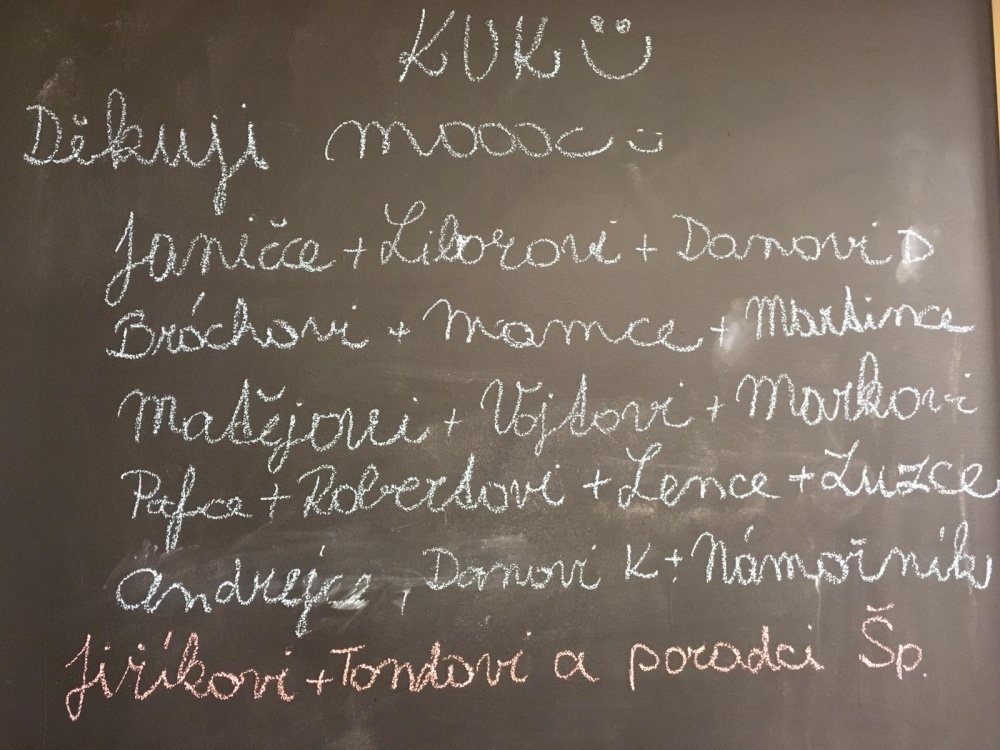 KUK
Děkuji moooc
Janičce + Liborovi + Danovi D
Bróchovi + Mamce + Martince
Matějovi + Vojtovi + Markovi
Pafce + Robertovi + Lence + Luzce
Andrejce, Danovi K + Námořník
Jiříkovi + Tondovi a poradci Šp.